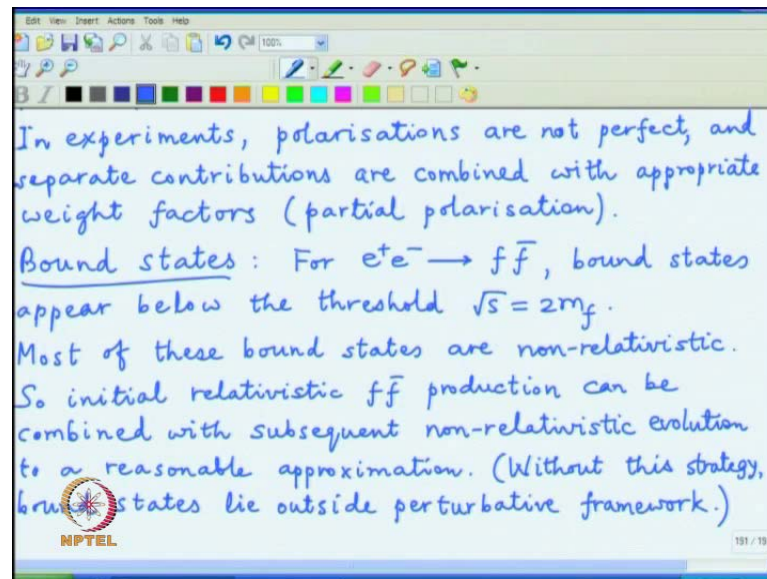 Edit View Insert Actions Tools Help
100%
B I
In experiments, polarisations are not perfect, and
separate contributions are combined with appropriate
weight factors (partial polarisation).
Bound states : For e⁺e⁻ → f f̄, bound states
appear below the threshold √s = 2m_f.
Most of these bound states are non-relativistic.
So initial relativistic f f̄ production can be
combined with subsequent non-relativistic evolution
to a reasonable approximation. (Without this strategy,
bound states lie outside perturbative framework.)
NPTEL
191 / 19